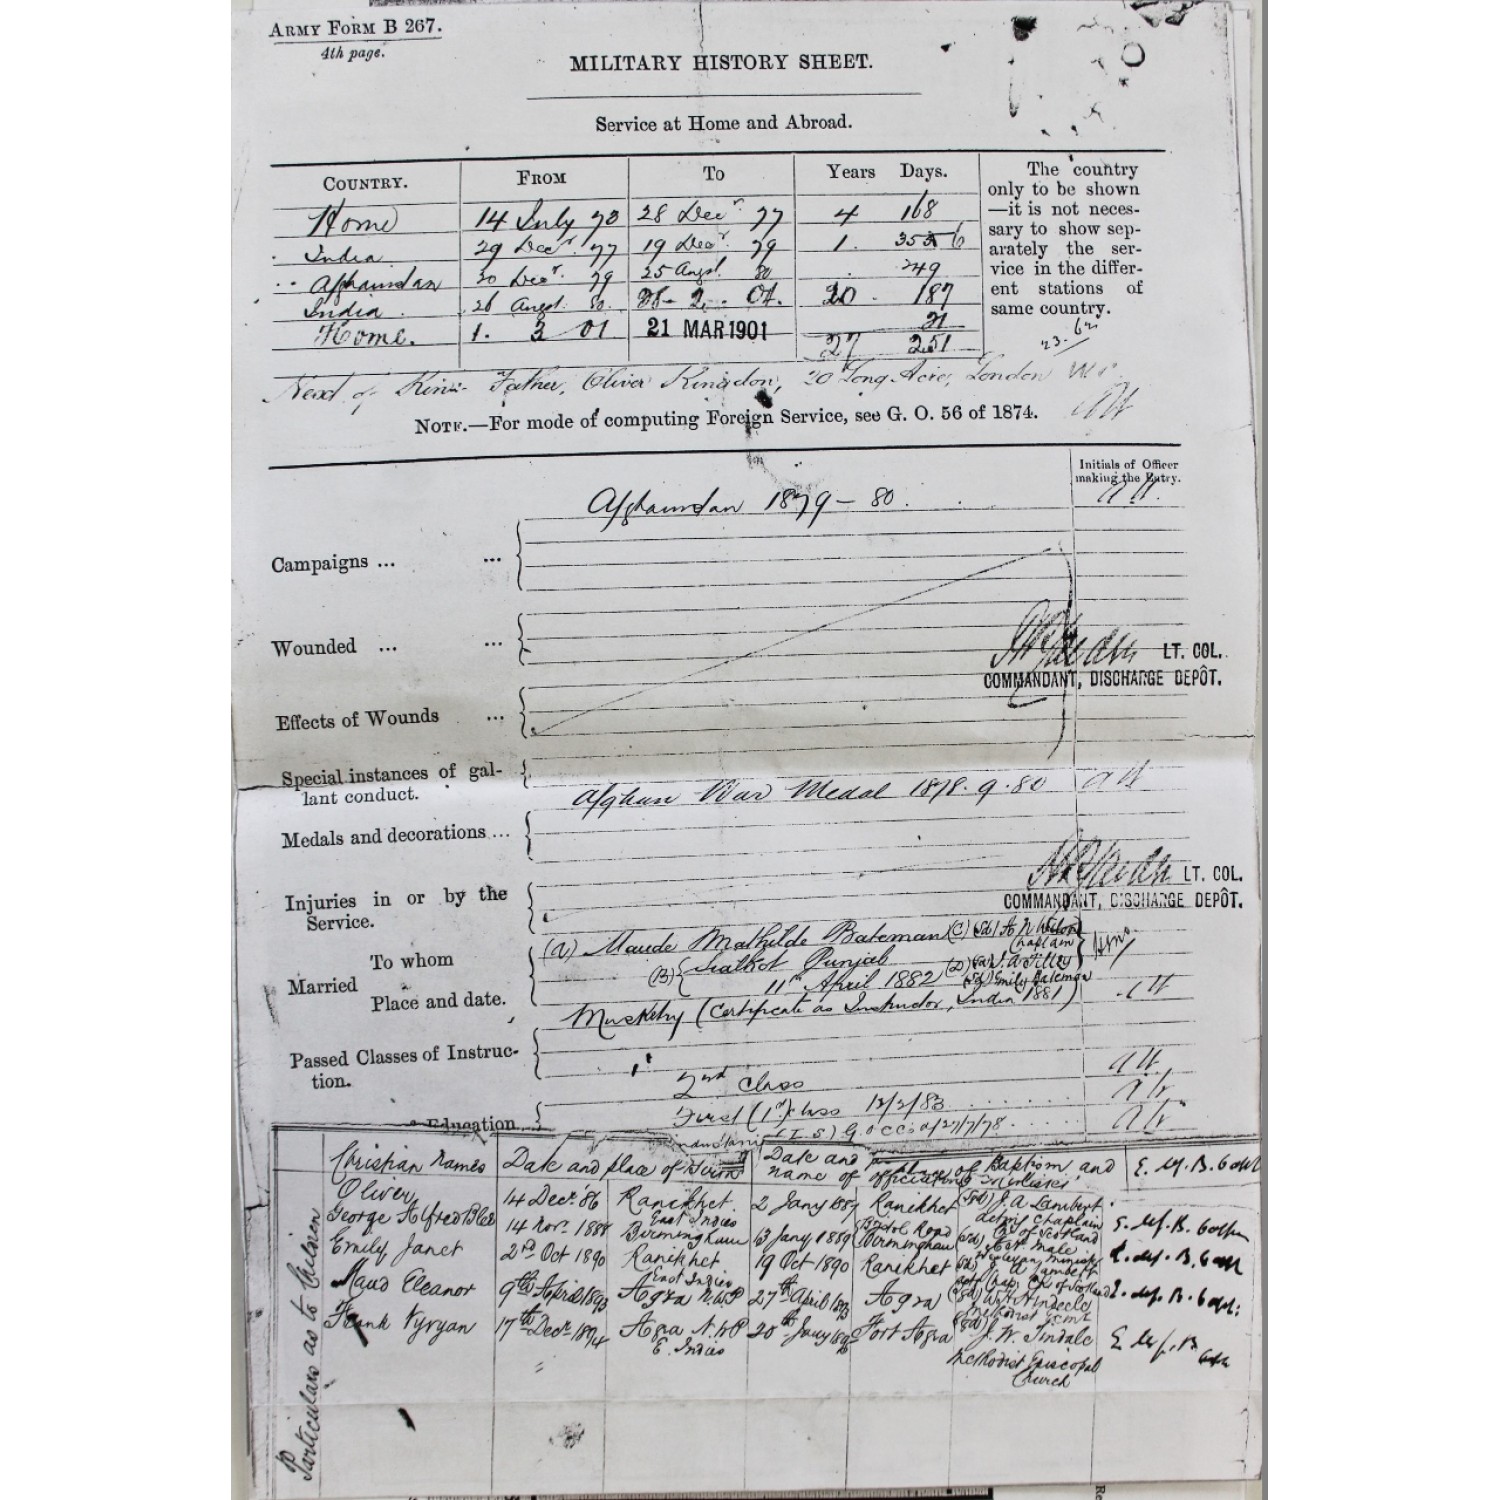 ARMY FORM B 267.
4th page.
MILITARY HISTORY SHEET.
Service at Home and Abroad.
COUNTRY. FROM To Years Days.
Home 14 July 73 28 Decr. 77 4 168
India 29 Decr. 77 19 Decr. 79 1. 356
Afghanistan 20 Decr. 79 25 Augst. 80 249
India 26 Augst. 80 28-2-01. 20 187
Home. 1. 3 01 21 MAR 1901 21
27 251
The country
only to be shown
—it is not neces-
sary to show sep-
arately the ser-
vice in the differ-
ent stations of
same country.
Next of Kin:- Father, Oliver Kingdon, 20 Long Acre, London W.C.
NOTE.—For mode of computing Foreign Service, see G. O. 56 of 1874.
Initials of Officer
making the Entry.
Afghanistan 1879-80.
Campaigns ... ...
Wounded ... ...
LT. COL.
COMMANDANT, DISCHARGE DEPÔT.
Effects of Wounds ...
Special instances of gal-
lant conduct.
Afghan War Medal 1878.9.80
Medals and decorations ...
LT. COL.
COMMANDANT, DISCHARGE DEPÔT.
Injuries in or by the
Service.
Married To whom
Place and date.
(A) Maude Mathilde Bateman (C) (Sd)
Chaplain
(B) Sealkot Punjab (D) (Sd)
11th April 1882 (Sd) Emily Bateman
Musketry (Certificate as Instructor, India 1881)
Passed Classes of Instruc-
tion.
2nd Class
First (1st) class 12/2/83
Education
Particulars as to Children
Christian names Date and place of Birth Date and place of Baptism, and
name of officiating Minister
Oliver 14 Decr. '86 Ranikhet East Indies 2 Jany 1887 Ranikhet (Sd) J. A. Lambert Army Chaplain Ch of Scotland
George Alfred 14 Novr. 1888 Birmingham 13 Jany 1889 Bristol Road Birmingham (Sd) Male Wesleyan Minister
Emily Janet 2nd Oct 1890 Ranikhet East Indies 19 Oct 1890 Ranikhet (Sd) J. A. Lambert Ch of Scotland
Maud Eleanor 9th April 1893 Agra N.W.P 27th April 1893 Agra (Sd)
Frank Vyvyan 17th Decr. 1894 Agra N.W.P E. Indies 20th Jany 1895 Fort Agra (Sd) J. W. Tindale
Methodist Episcopal
Church